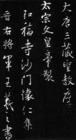 大唐三藏聖教序
太宗文皇帝製
弘福寺沙門懷仁集
晉右將軍王羲之書